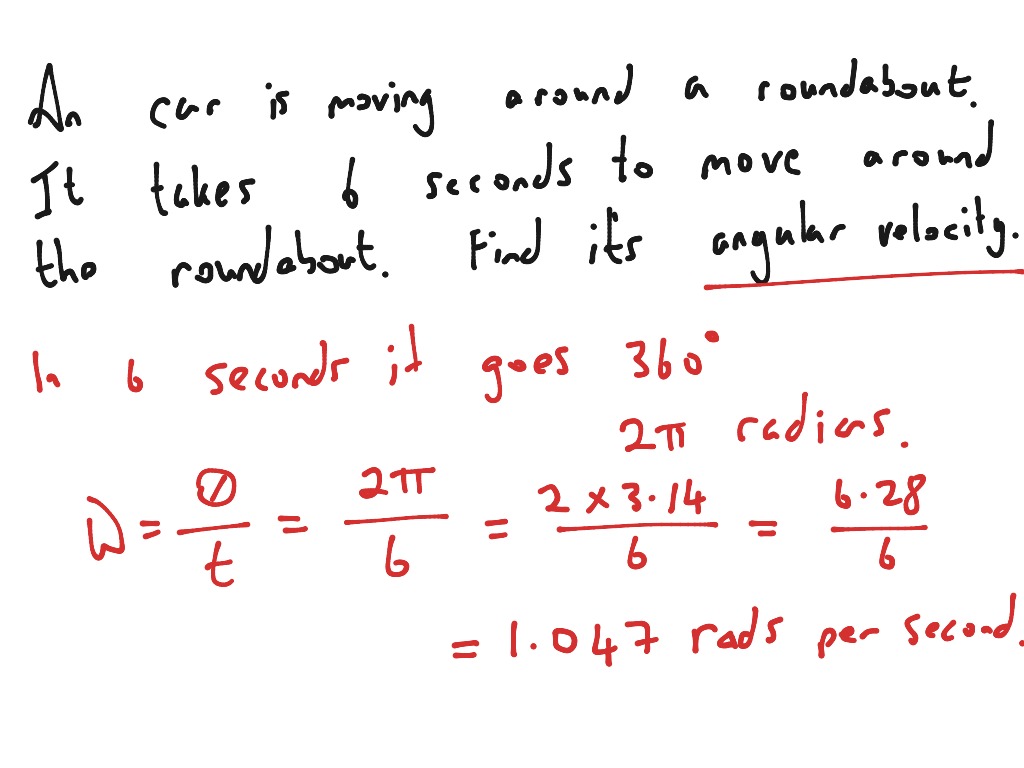 An car is moving around a roundabout.
It takes 6 seconds to move around
the roundabout. Find its angular velocity.
In 6 seconds it goes 360°
2π radians.
ω = θ/t = 2π/6 = 2 × 3·14/6 = 6·28/6
= 1.047 rads per second.